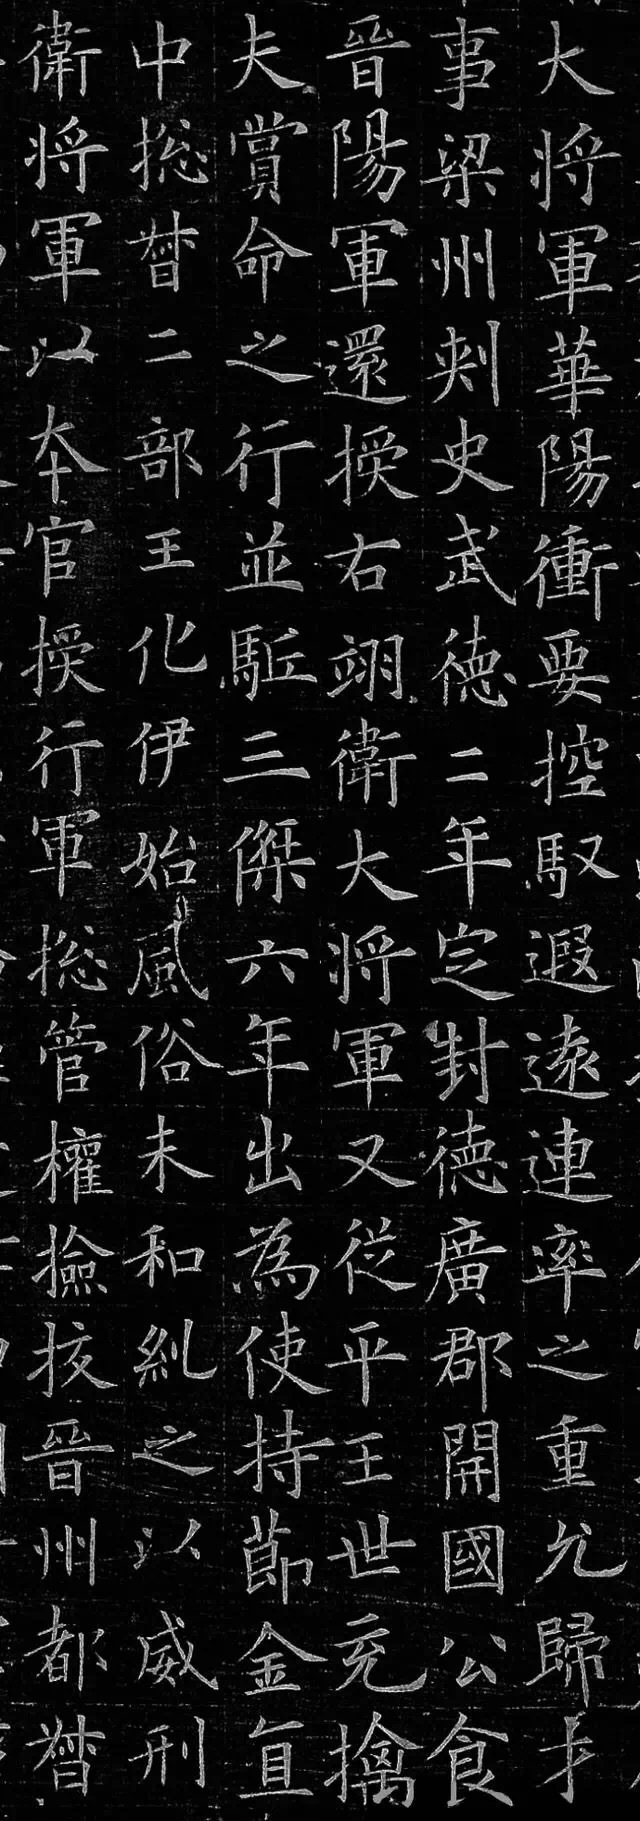 大將軍華陽衝要控馭遐遠連率之重允歸才
事梁州刺史武德二年定封德廣郡開國公食
晉陽軍還授右翊衛大將軍又從平王世充擒
夫賞命之行並駈三傑六年出為使持節金直
中揔督二部王化伊始風俗未和糺之以威刑
衛將軍以本官授行軍揔管權撿挍晉州都督